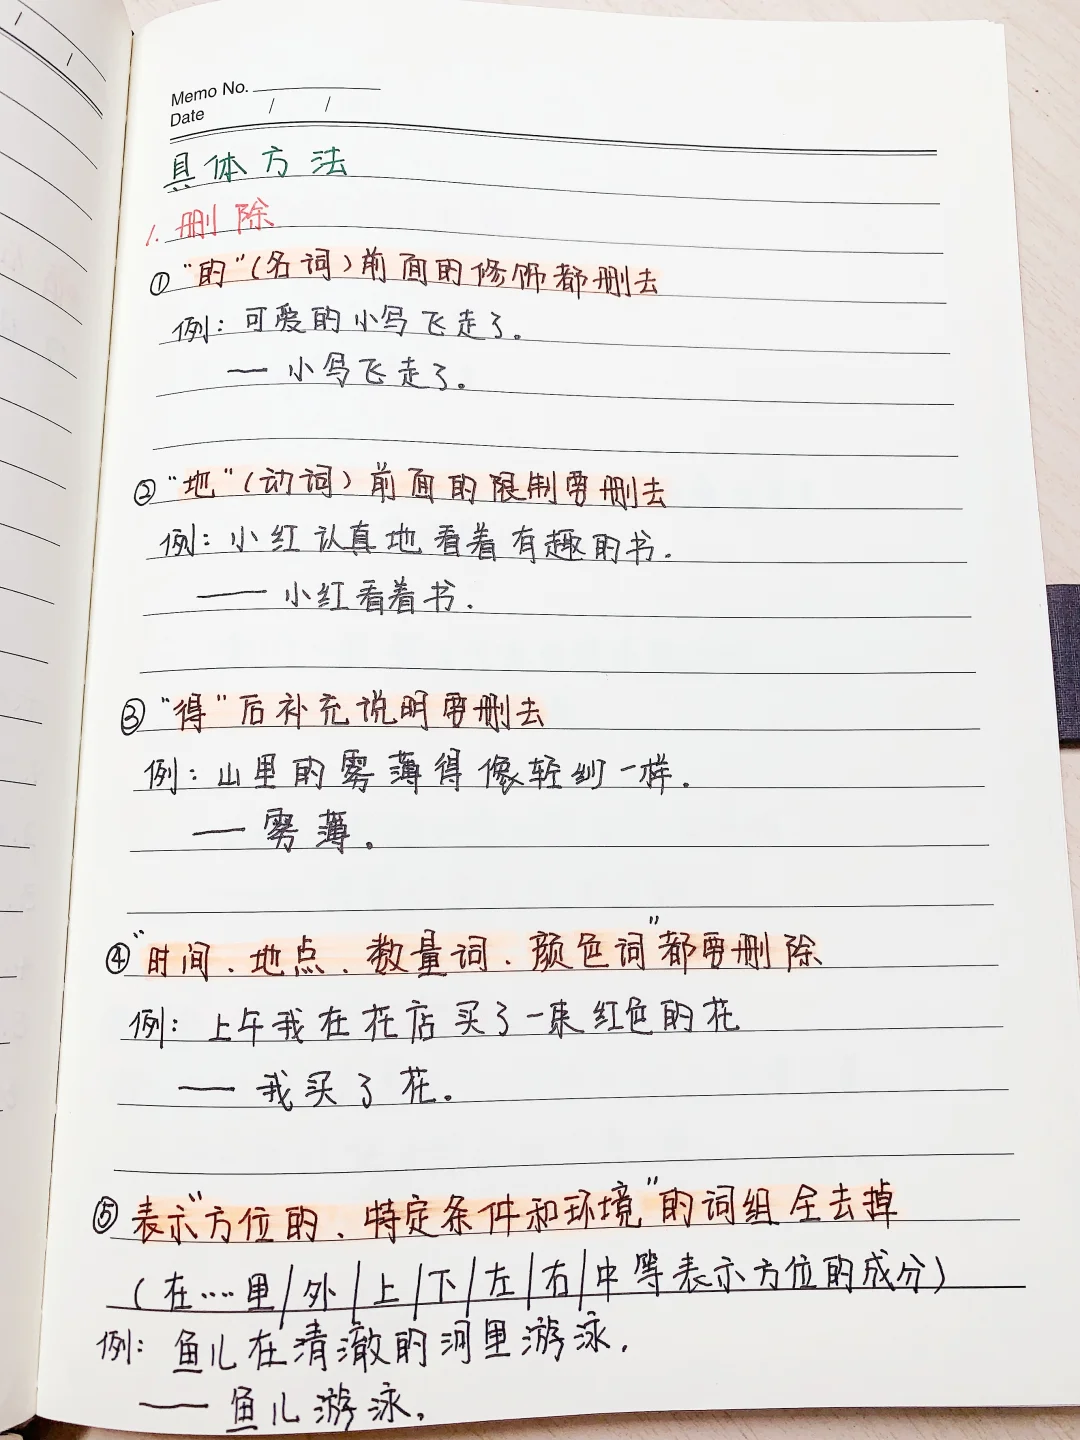 Memo No.
Date / /
具体方法
1. 删除
①“的”(名词)前面的修饰都删去
例：可爱的小鸟飞走了。
— 小鸟飞走了。
②“地”(动词)前面的限制要删去
例：小红认真地看着有趣的书.
—— 小红看着书.
③“得”后补充说明要删去
例：山里的雾薄得像轻纱一样.
—— 雾薄.
④“时间、地点、数量词、颜色词”都要删除
例：上午我在花店买了一束红色的花
—— 我买了花.
⑤表示“方位的、特定条件和环境”的词组全去掉
(在……里/外/上/下/左/右/中等表示方位的成分)
例：鱼儿在清澈的河里游泳.
—— 鱼儿游泳.